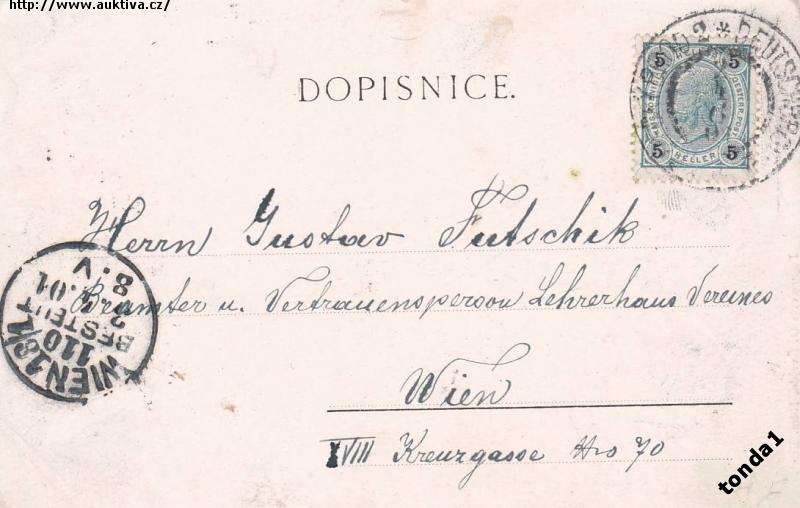 http://www.auktiva.cz/
DOPISNICE.
5 5
5 HELLER 5
Herrn Gustav Futschik
Beamter u. Vertrauensperson Lehrerhaus Vereines
Wien
XVIII Kreuzgasse Nro 70
WIEN 18/1
110
BESTELLT
8.V
tonda1